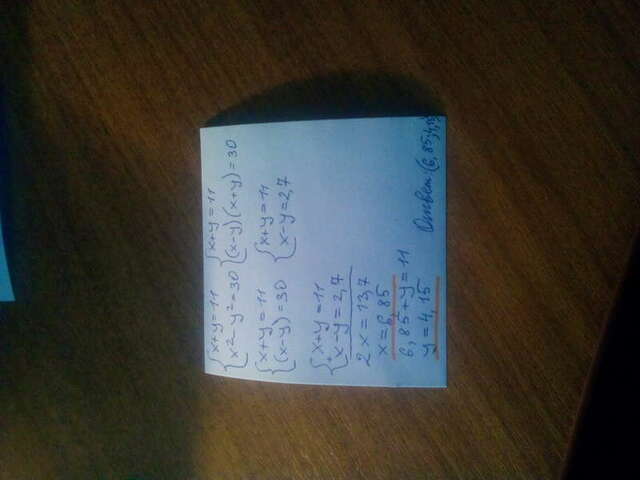 {x+y=11 {x+y=11
{x²-y²=30 {(x-y)(x+y)=30
{x+y=11 {x+y=11
{(x-y)=30 {x-y=2,7
{x+y=11
{x-y=2,7
2x=13,7
x=6,85
6,85+y=11
y=4,15
Ответ:(6,85;4,15)